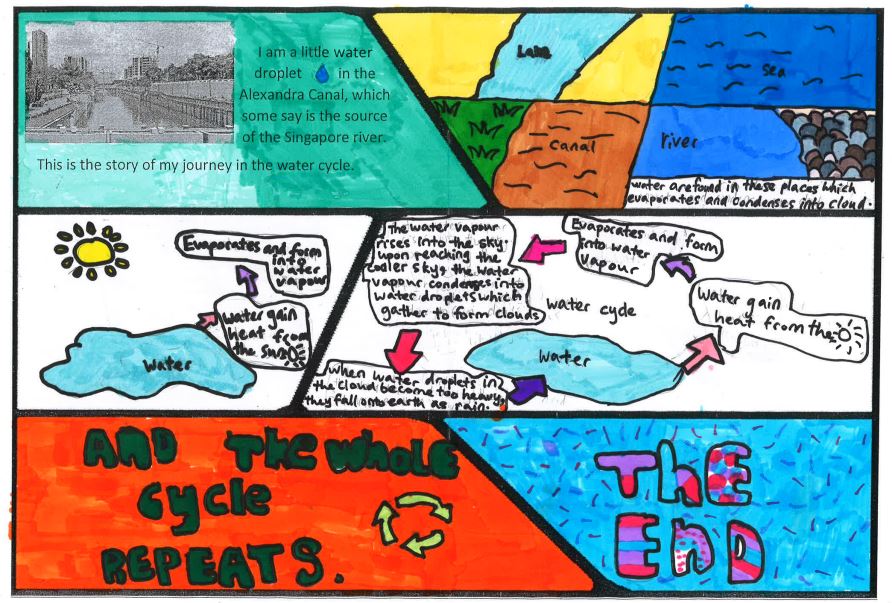 I am a little water
droplet in the
Alexandra Canal, which
some say is the source
of the Singapore river.
This is the story of my journey in the water cycle.
Lake
sea
canal
river
water are found in these places which
evaporates and condenses into cloud.
Evaporates and form
into
water
vapour
water gain
heat from
the sun
water
The water vapour
rises into the sky.
upon reaching the
cooler sky, the water
vapour condenses into
water droplets which
gather to form clouds
Evaporates and form
into water
vapour
water cycle
water gain
heat from the
water
When water droplets in
the cloud become too heavy,
they fall onto earth as rain.
AND THE WHOLE
cycle
REPEATS.
THE
END